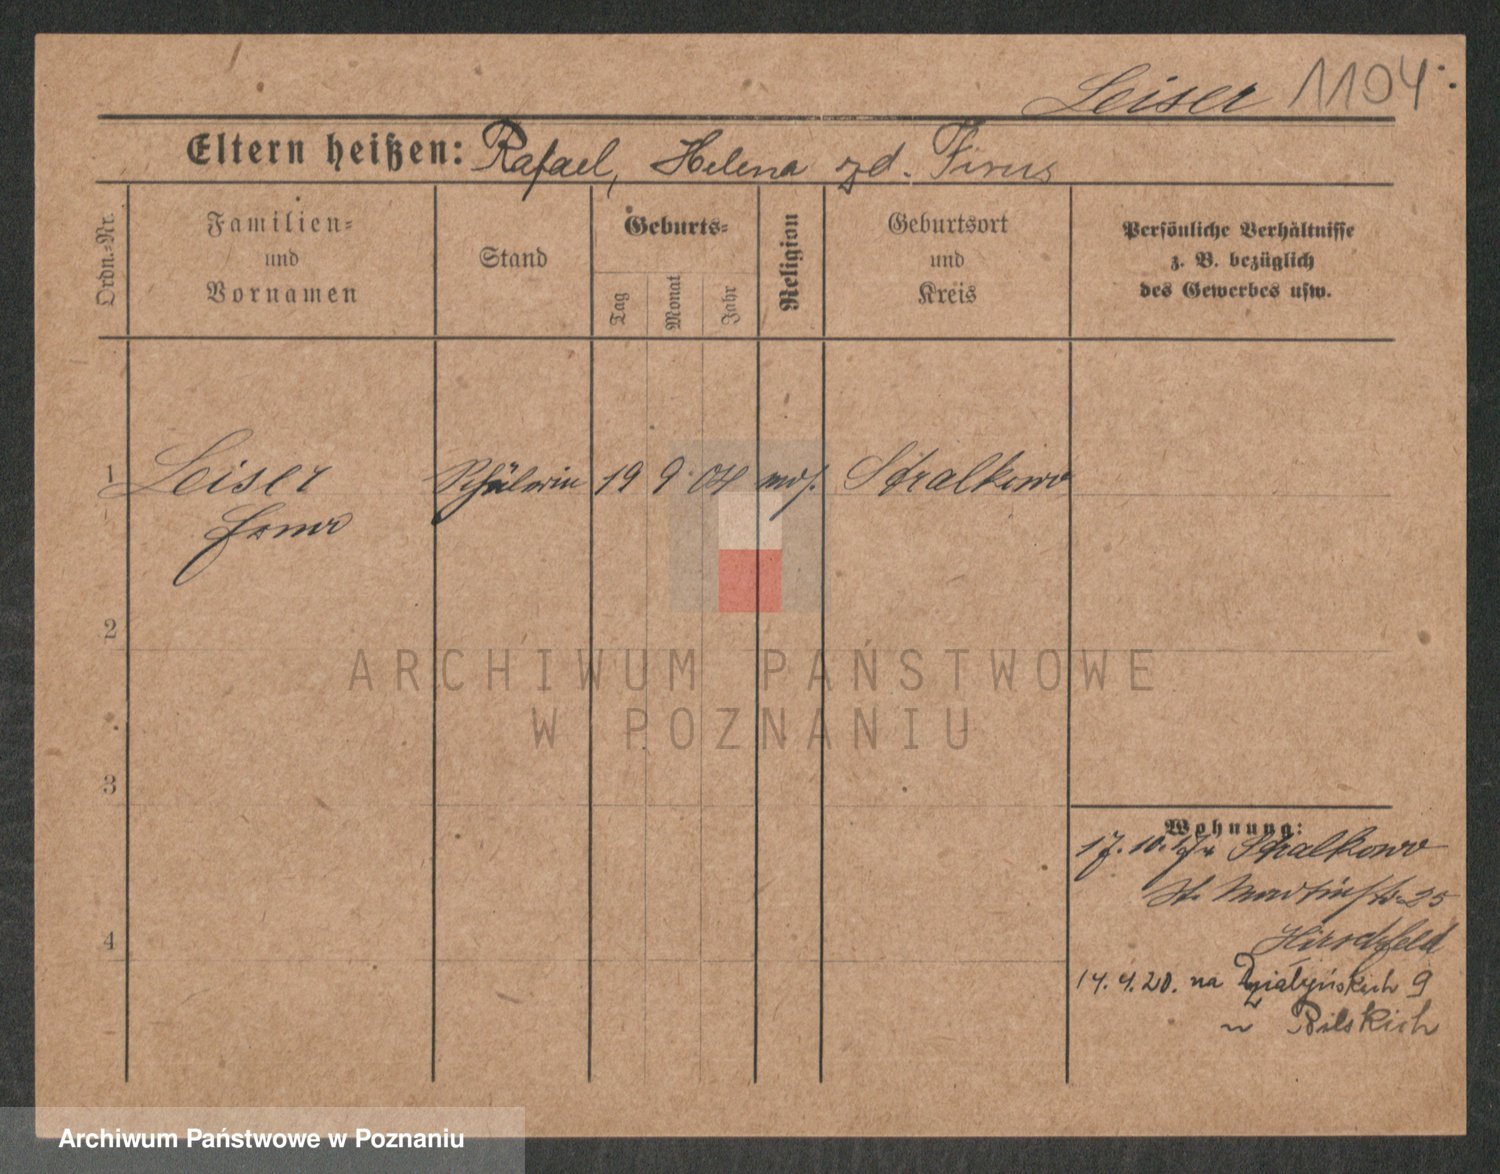 Leiser 1104
Eltern heißen: Rafael, Helena zd. Pirus
Ordn.-Nr.
Familien-
und
Vornamen
Stand
Geburts-
Tag
Monat
Jahr
Religion
Geburtsort
und
Kreis
Persönliche Verhältnisse
z. B. bezüglich
des Gewerbes usw.
1 Leiser Schülerin 19 9 04 mos. Stralkowo
2
3
4
Wohnung:
17. 10. Stralkowo
St. Martinstr. 25
Hirschfeld
14. 4. 20. na Działyńskich 9
Bilskich
ARCHIWUM PAŃSTWOWE
W POZNANIU
Archiwum Państwowe w Poznaniu